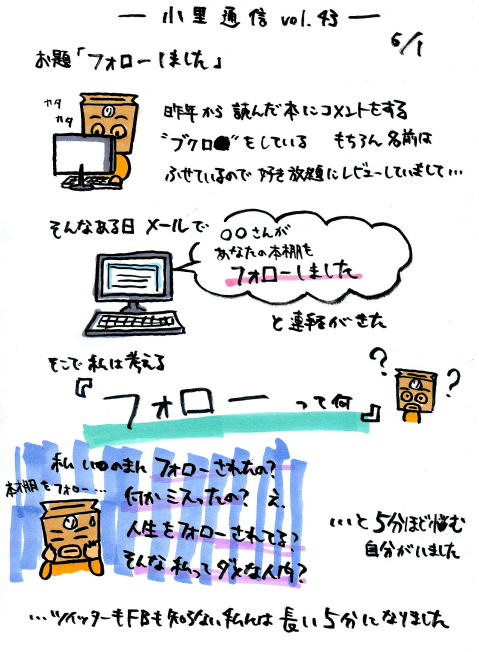 小里通信 vol.43
6/1
お題「フォローしました」
カタ
カタ
昨年から 読んだ本にコメントをする
"ブクロ●"をしている もちろん 名前は
ふせているので 好き放題にレビューしていまして…
そんなある日 メールで
〇〇さんが
あなたの本棚を
フォローしました
と連絡がきた
そこで私は考える
『フォローって何』
? ?
私 いつのまに フォローされたの?
何かミスったの? え、
人生をフォローされてる?
そんな私ってダメな人間?
本棚をフォロー…
…と 5分ほど悩む
自分がいました
…ツイッターもFBも知らない私には 長い5分になりました